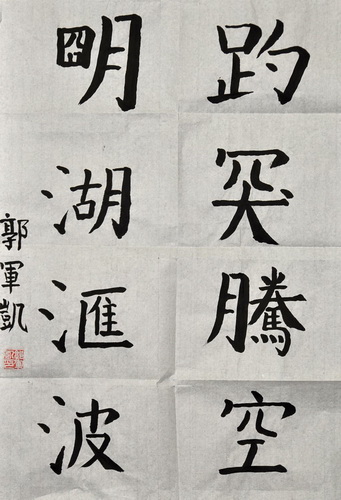 趵突騰空
明湖滙波
郭軍凱